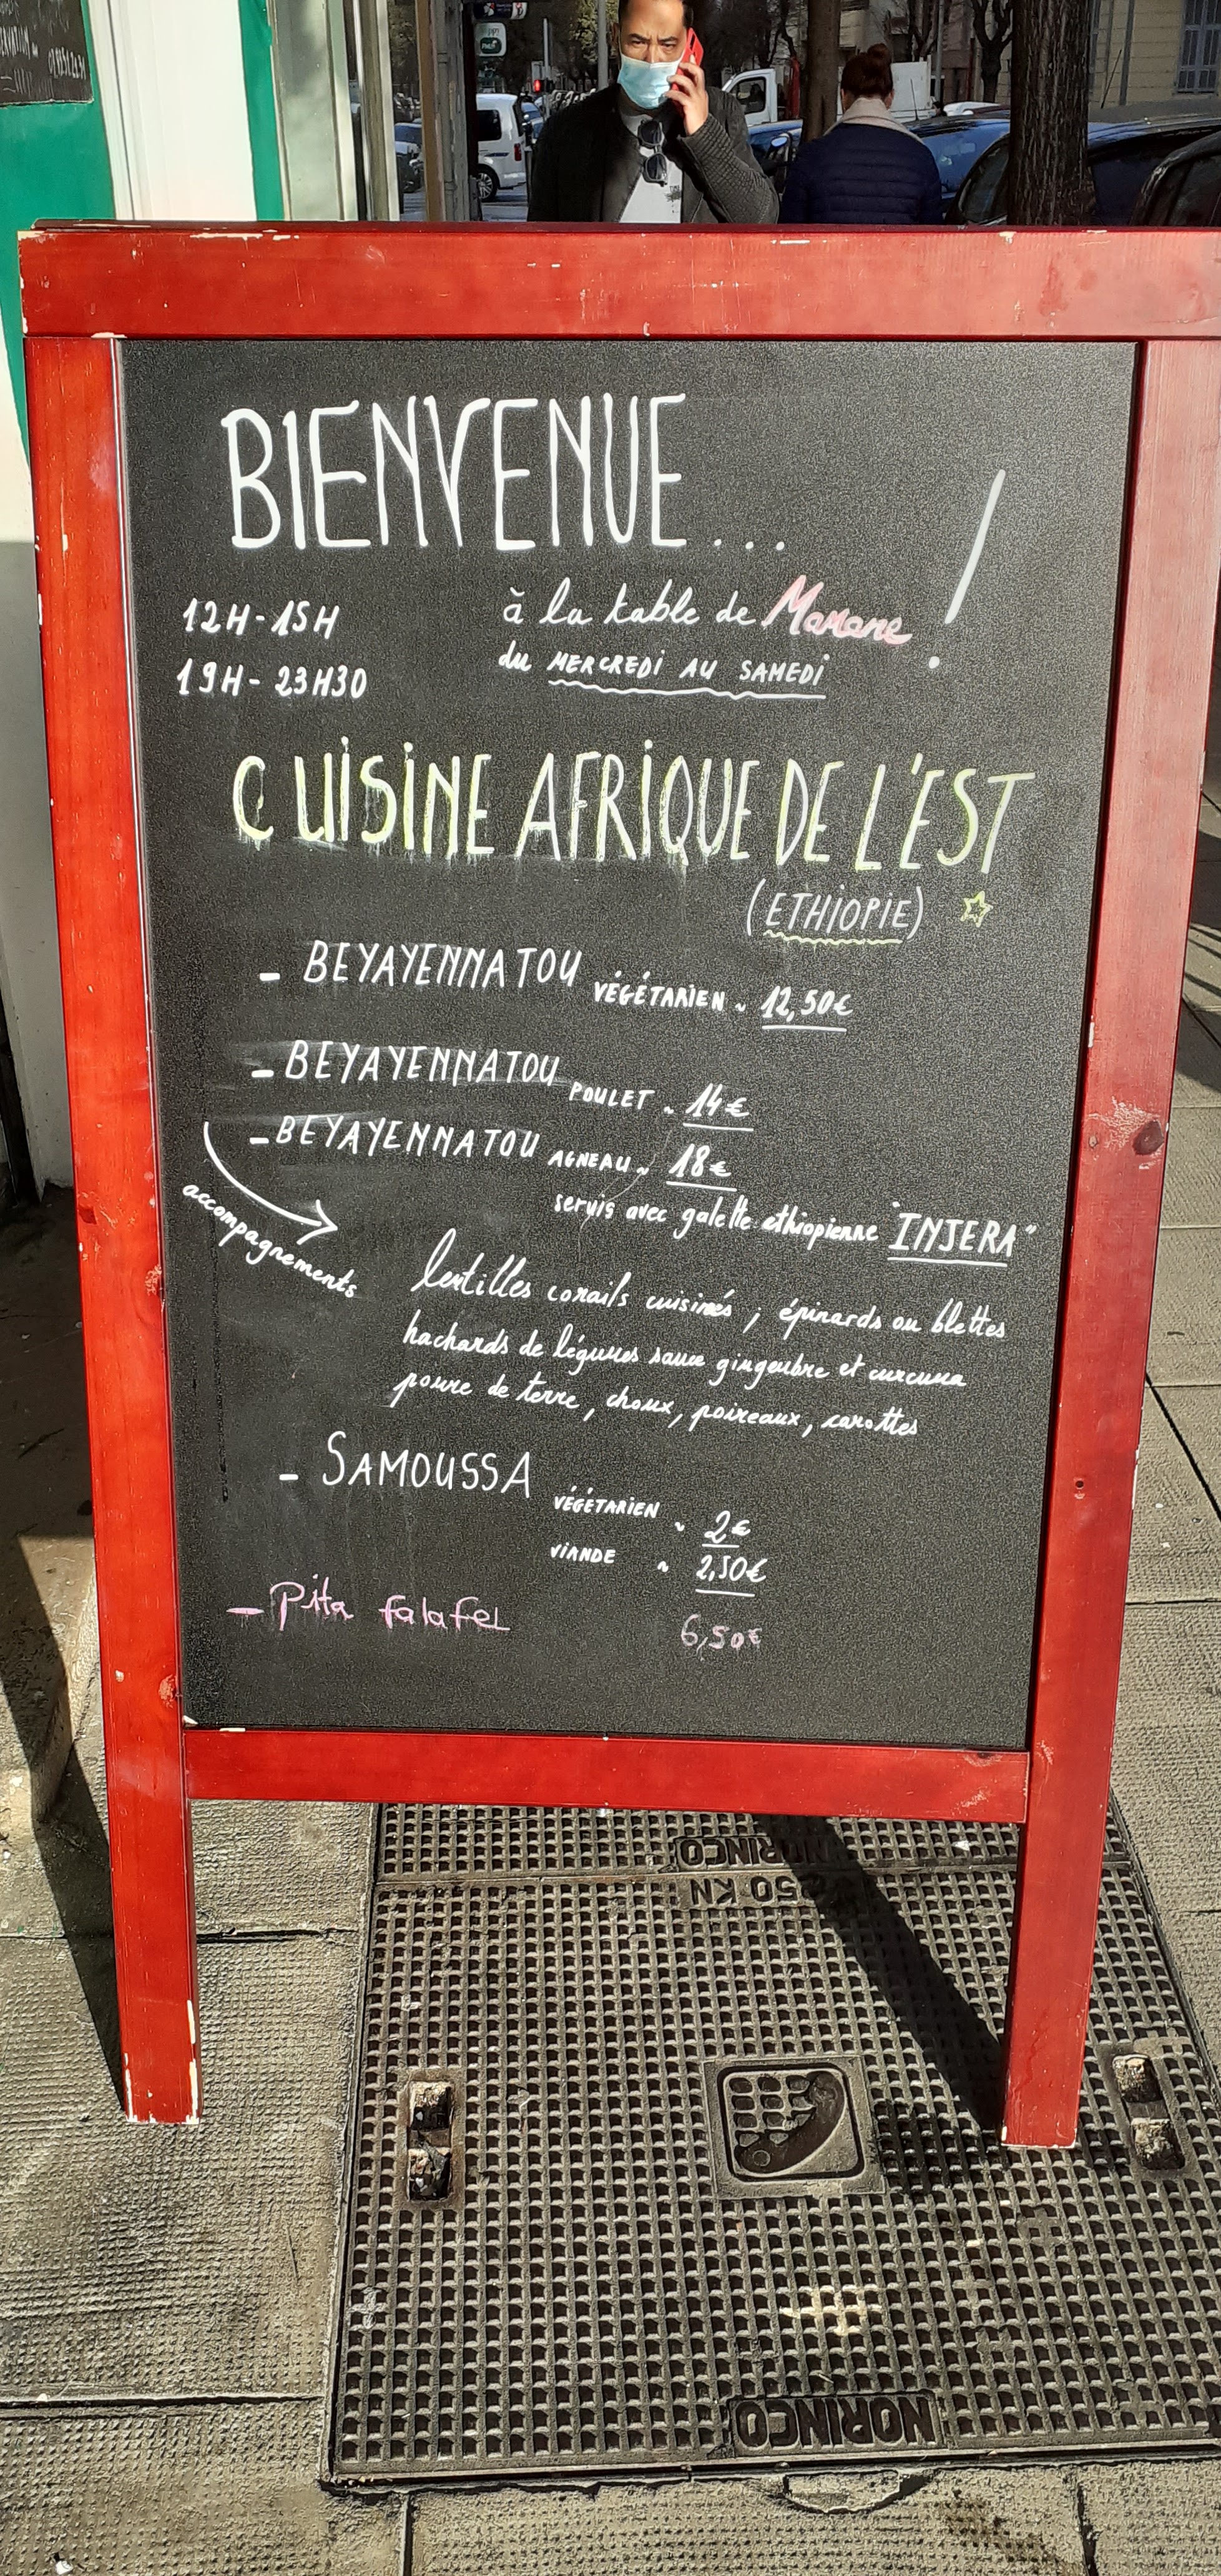 BIENVENUE... !
12H-15H
à la table de Mamane
19H-23H30
du MERCREDI AU SAMEDI
CUISINE AFRIQUE DE L'EST
(ETHIOPIE)
- BEYAYENNATOU VÉGÉTARIEN ~ 12,50€
- BEYAYENNATOU POULET ~ 14€
- BEYAYENNATOU AGNEAU ~ 18€
servis avec galette ethiopienne "INJERA"
accompagnements
lentilles corails cuisinés ; épinards ou blettes
hachards de légumes sauce gingembre et curcuma
pomme de terre, choux, poireaux, carottes
- SAMOUSSA
VÉGÉTARIEN ~ 2€
VIANDE ~ 2,50€
- Pita falafel 6,50€
NORINCO
250 KN
NORINCO